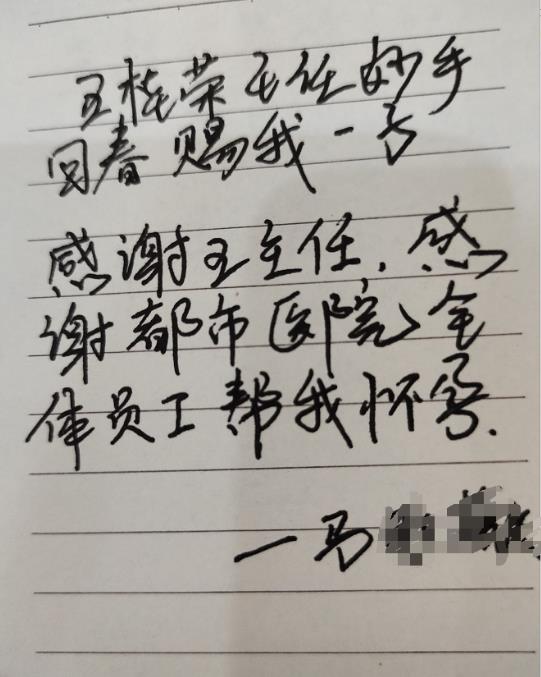 王桂荣主任妙手
回春赐我一子
感谢王主任.感
谢都市医院全
体员工帮我怀孕.
一马